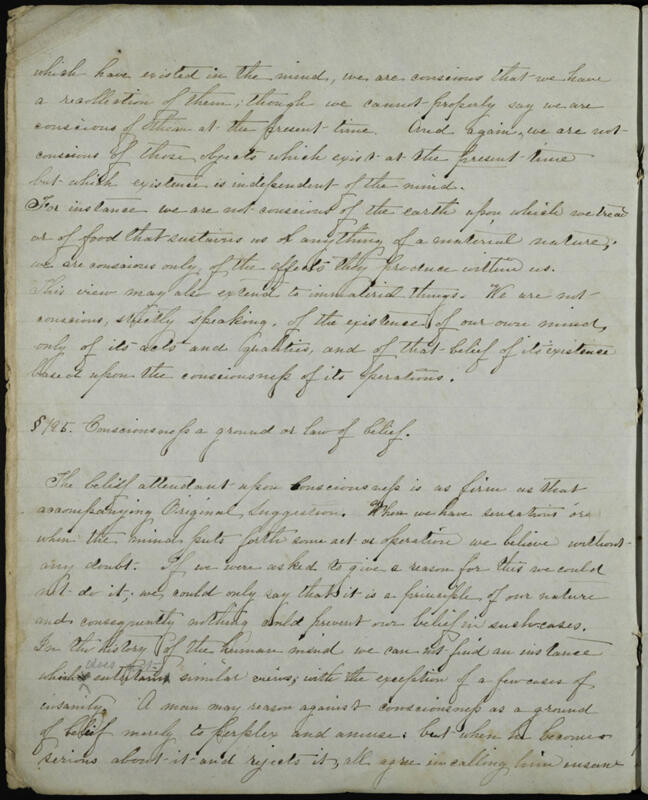 which have existed in the mind, we are conscious that we have
a recollection of them; though we cannot properly say we are
conscious of them at the present time. And again, we are not
conscious of those objects which exist at the present time
but which existence is independent of the mind.
For instance we are not conscious of the earth upon which we tread
or of food that sustains us or anything of a material nature;
we are conscious only of the effects they produce within us.
This view may also extend to immaterial things. We are not
conscious, strictly speaking, of the existence of our own mind,
only of its acts and qualities, and of that belief of its existence
based upon the consciousness of its operations.
§ 125. Consciousness a ground or law of belief.
The belief attendant upon Consciousness is as firm as that
accompanying Original Suggestion. When we have sensations or
when the mind puts forth some act or operation we believe without
any doubt. If we were asked to give a reason for this we could
not do it; we could only say that it is a principle of our nature
and consequently nothing could prevent our belief in such cases.
In the history of the human mind we can not find an instance
which does not entertain similar views; with the exception of a few cases of
insanity. A man may reason against consciousness as a ground
of belief merely to perplex and amuse; but when he becomes
serious about it and rejects it, all agree in calling him insane